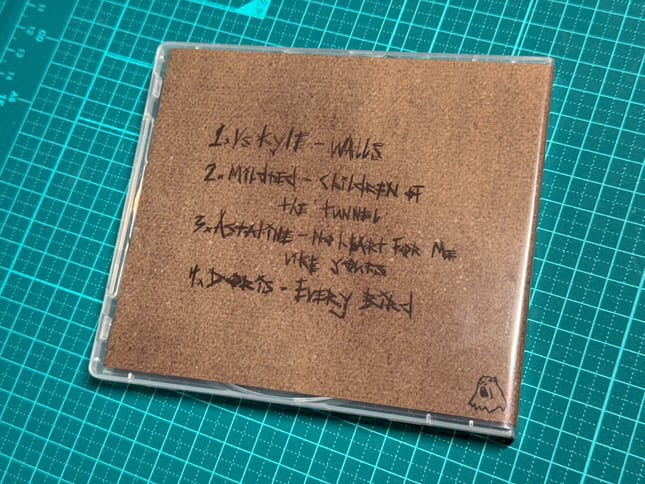 1. Vs Kyle - Walls
2. Mildred - Children of
the tunnel
3. Astatine - No Heart For Me
Like Yours
4. Doris - Every Bird